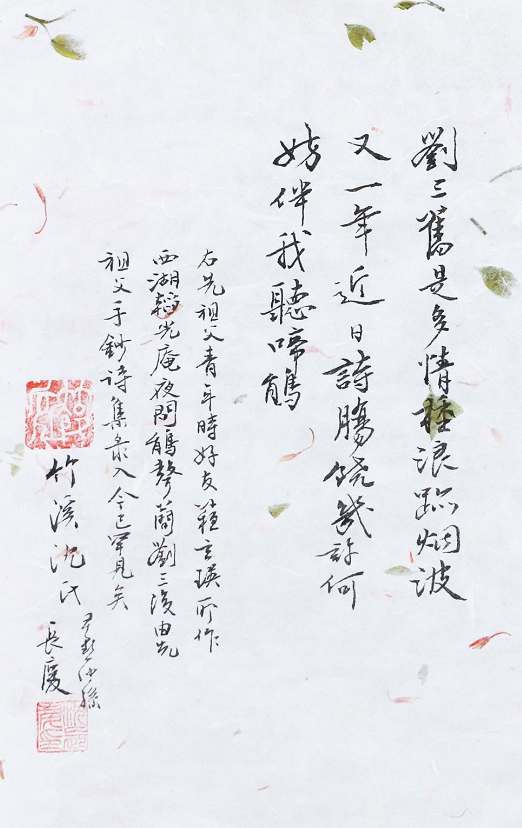 劉三舊是多情種浪跡烟波
又一年近日詩腸饒幾許何
妨伴我聽啼鵑
右先祖父青年時好友蘇玄瑛所作
西湖韜光庵夜聞鵑聲簡劉三後由先
祖父手鈔詩集录入今已罕見矣
竹溪沈氏
尹默孫
長慶